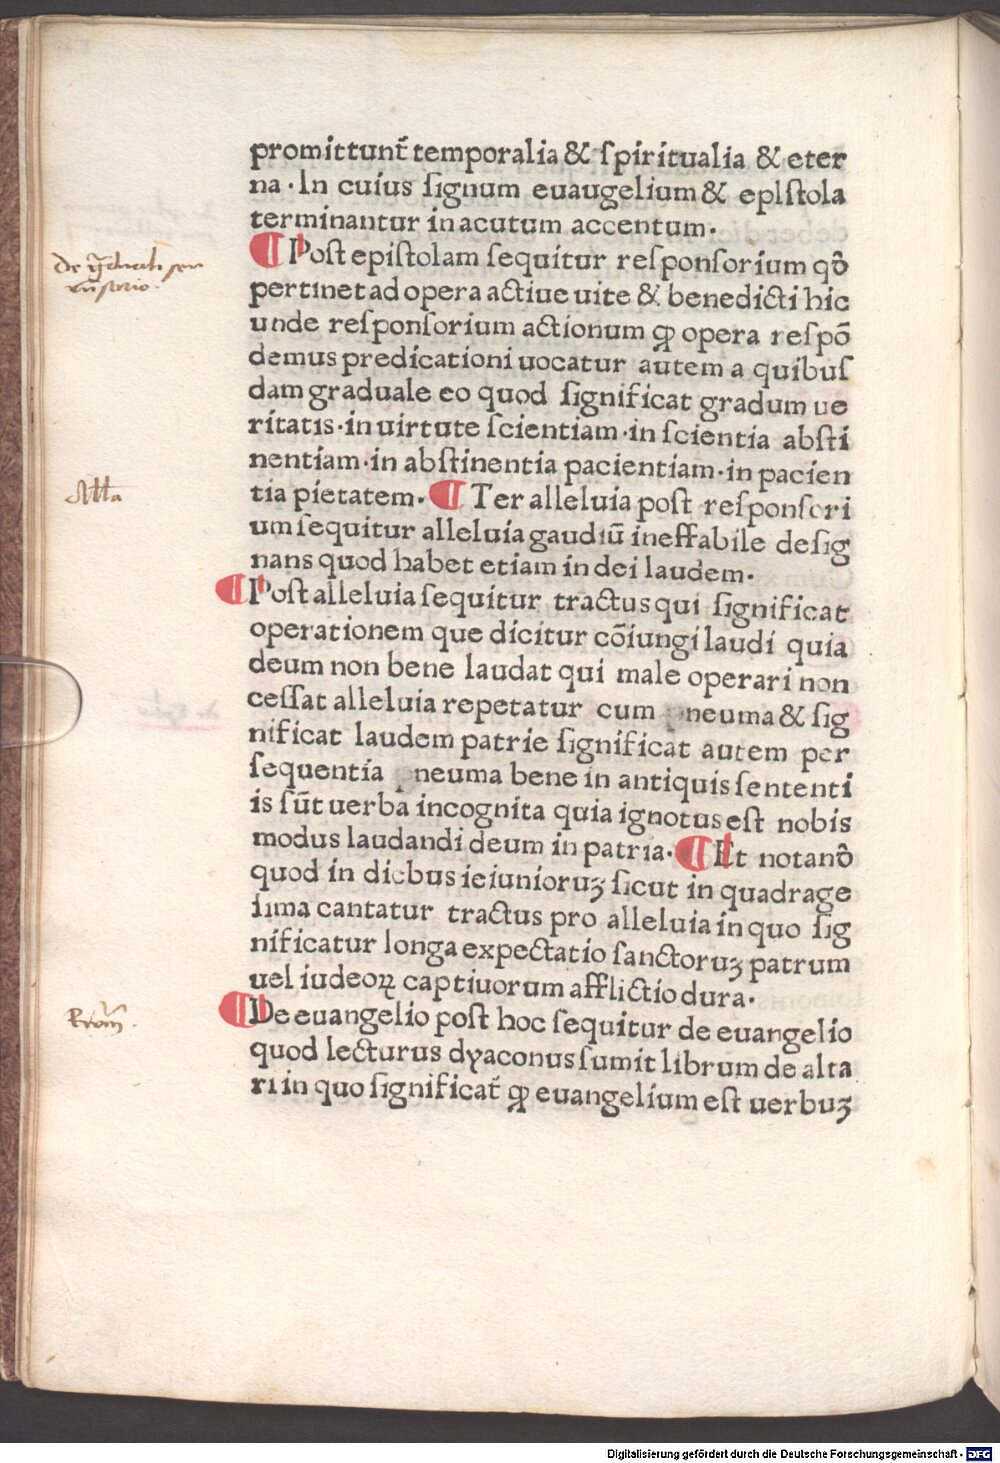 promittunt̃ temporalia & spiritualia & eter
na · In cuius signum euaugelium & eplstola
terminantur in acutum accentum ·
¶ Post epistolam sequitur responsorium qō
pertinet ad opera actiue uite & benedicti hic
unde responsorium actionum ꝙ opera respō
demus predicationi uocatur autem a quibus
dam graduale eo quod significat gradum ue
ritatis · in uirtute scientiam · in scientia absti
nentiam · in abstinentia pacientiam · in pacien
tia pietatem · ¶ Ter alleluia post responsori
um sequitur alleluia gaudiū ineffabile desig
nans quod habet etiam in dei laudem ·
¶ Post alleluia sequitur tractus qui significat
operationem que dicitur cōiungi laudi quia
deum non bene laudat qui male operari non
cessat alleluia repetatur cum pneuma & sig
nificat laudem patrie significat autem per
sequentia pneuma bene in antiquis sententi
is sūt uerba incognita quia ignotus est nobis
modus laudandi deum in patria · ¶ Et notanō
quod in diebus ieiunioruꝫ sicut in quadrage
sima cantatur tractus pro alleluia in quo sig
nificatur longa expectatio sanctoruꝫ patrum
uel iudeoꝝ captiuorum afflictio dura ·
¶ De euangelio post hoc sequitur de euangelio
quod lecturus dyaconus sumit librum de alta
ri in quo significat̃ ꝙ euangelium est uerbuꝫ
Alla
Digitalisierung gefördert durch die Deutsche Forschungsgemeinschaft - DFG